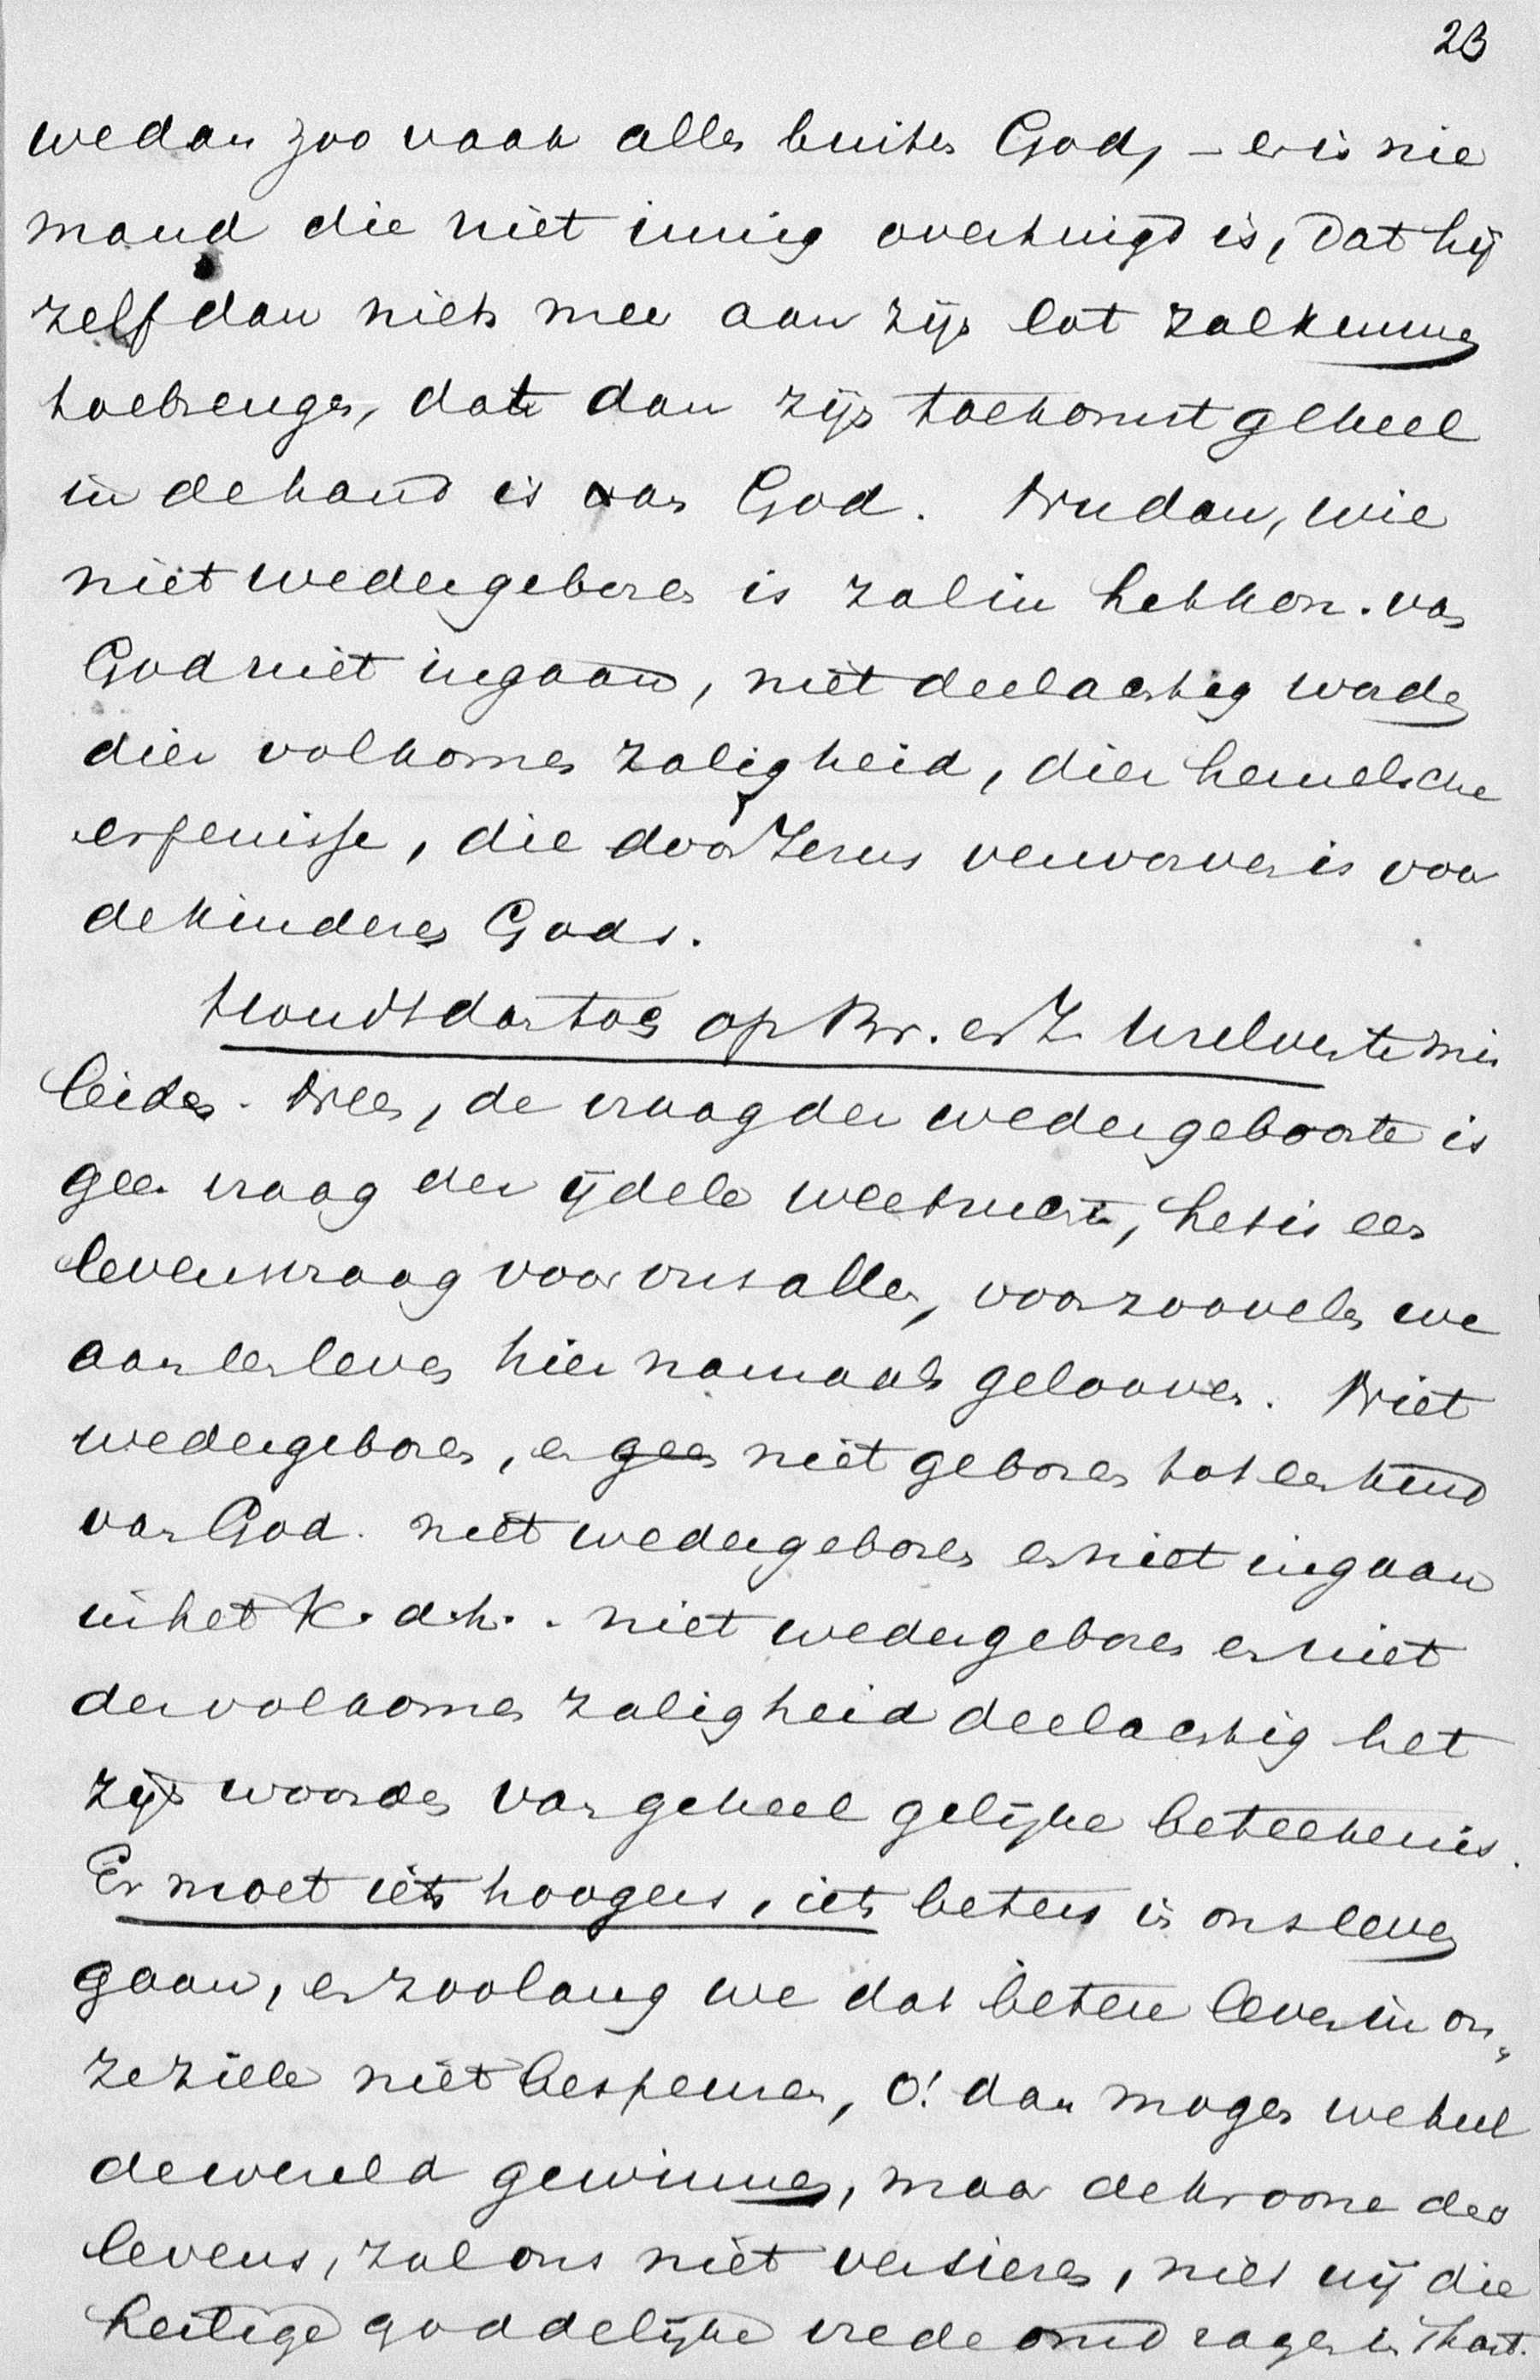 23
we dan zoo vaak alles buiten God, – er is nie
mand die niet innig overtuigd is, dat hij
zelf dan niets meer aan zijn lot zal kunnen
toebrengen, dat dan zijn toekomst geheel
in de hand is van God. Nu dan, wie
niet wedergeboren is zal in het kon. van
God niet ingaan, niet deelachtig worden
dier volkomen zaligheid, dier hemelsche
erfenisse, die door Jezus verworven is voor
de kinderen Gods.
Houdt dan toe op Br. en Z. Uzelven te mis
leiden. Neen, de vraag der wedergeboorte is
geen vraag der ijdele weetzucht, het is een
levensvraag voor ons allen, voor zoovelen we
aan een leven hier namaals gelooven. Niet
wedergeboren, en geen niet geboren tot een kind
van God. niet wedergeboren en niet ingaan
in het K. d. h. . niet wedergeboren en niet
der volkomen zaligheid deelachtig het
zijn woorden van geheel gelijke beteekenis.
Er moet iets hoogers, iets beters in ons leven
gaan, en zoolang we dat betere leven in on„
ze ziele niet bespeuren, O! dan mogen we heel
de wereld gewinnen, maar de kroone des
levens, zal ons niet versieren, niet wij die
heilige goddelijke vrede omdragen in 't hart.